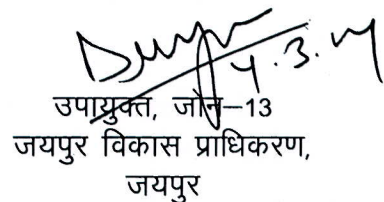 4.3.14
उपायुक्त, जोन–13
जयपुर विकास प्राधिकरण,
जयपुर